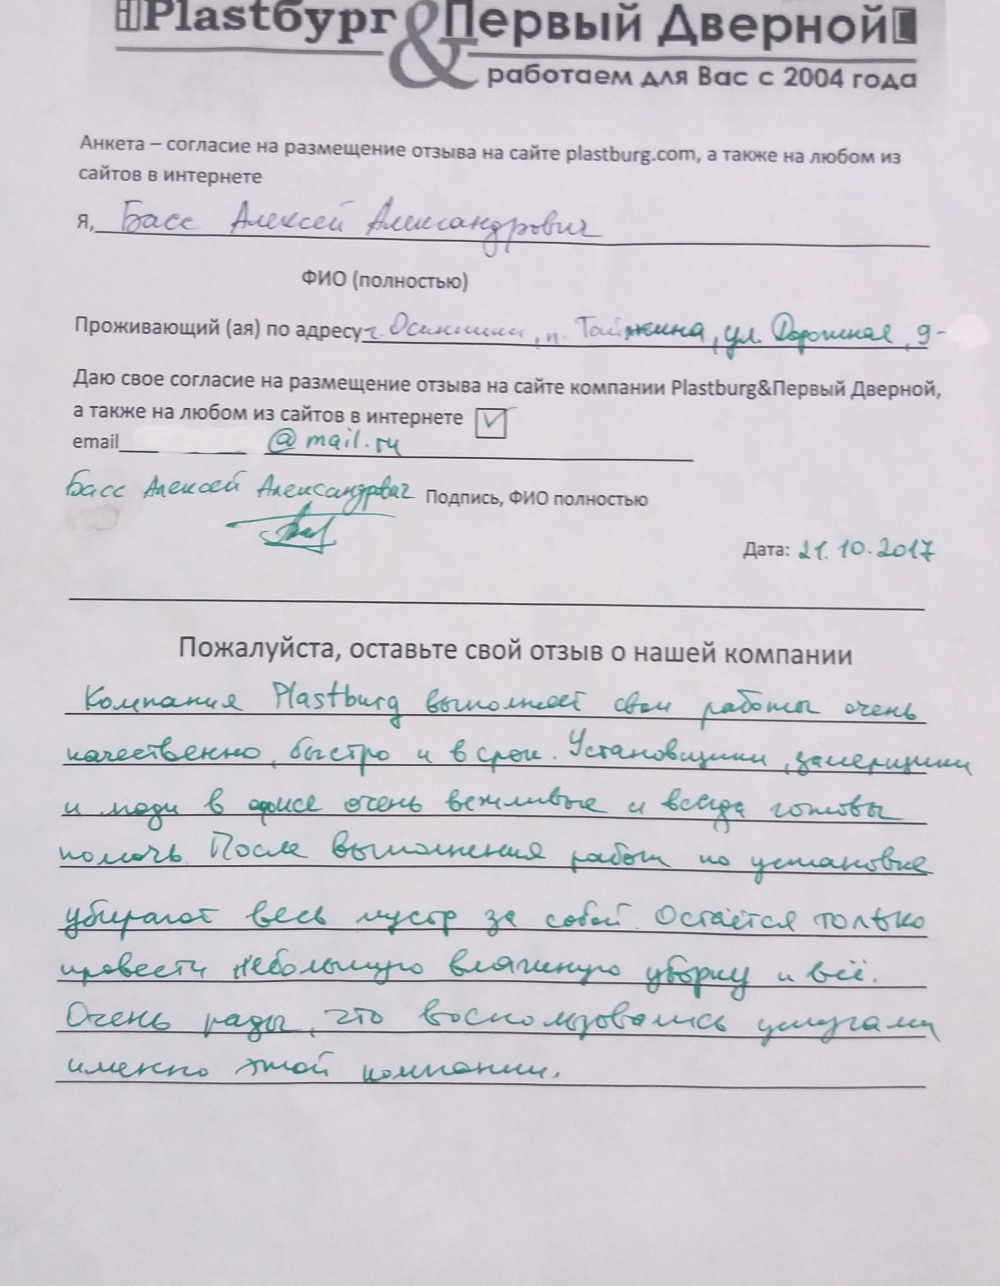 Plastбург & Первый Дверной
работаем для Вас с 2004 года
Анкета – согласие на размещение отзыва на сайте plastburg.com, а также на любом из
сайтов в интернете
Я, Басс Алексей Александрович
ФИО (полностью)
Проживающий (ая) по адресу г. Осинники, п. Тайжина, ул. Дорожная, 9-
Даю свое согласие на размещение отзыва на сайте компании Plastburg&Первый Дверной,
а также на любом из сайтов в интернете
email @mail.ru
Басс Алексей Александрович Подпись, ФИО полностью
Дата: 21.10.2017
Пожалуйста, оставьте свой отзыв о нашей компании
Компания Plastburg выполняет свои работы очень
качественно, быстро и в срок. Установщики, замерщики
и люди в офисе очень вежливые и всегда готовы
помочь. После выполнения работ по установке
убирают весь мусор за собой. Остаётся только
провести небольшую влажную уборку и всё.
Очень рады, что воспользовались услугами
именно этой компании.